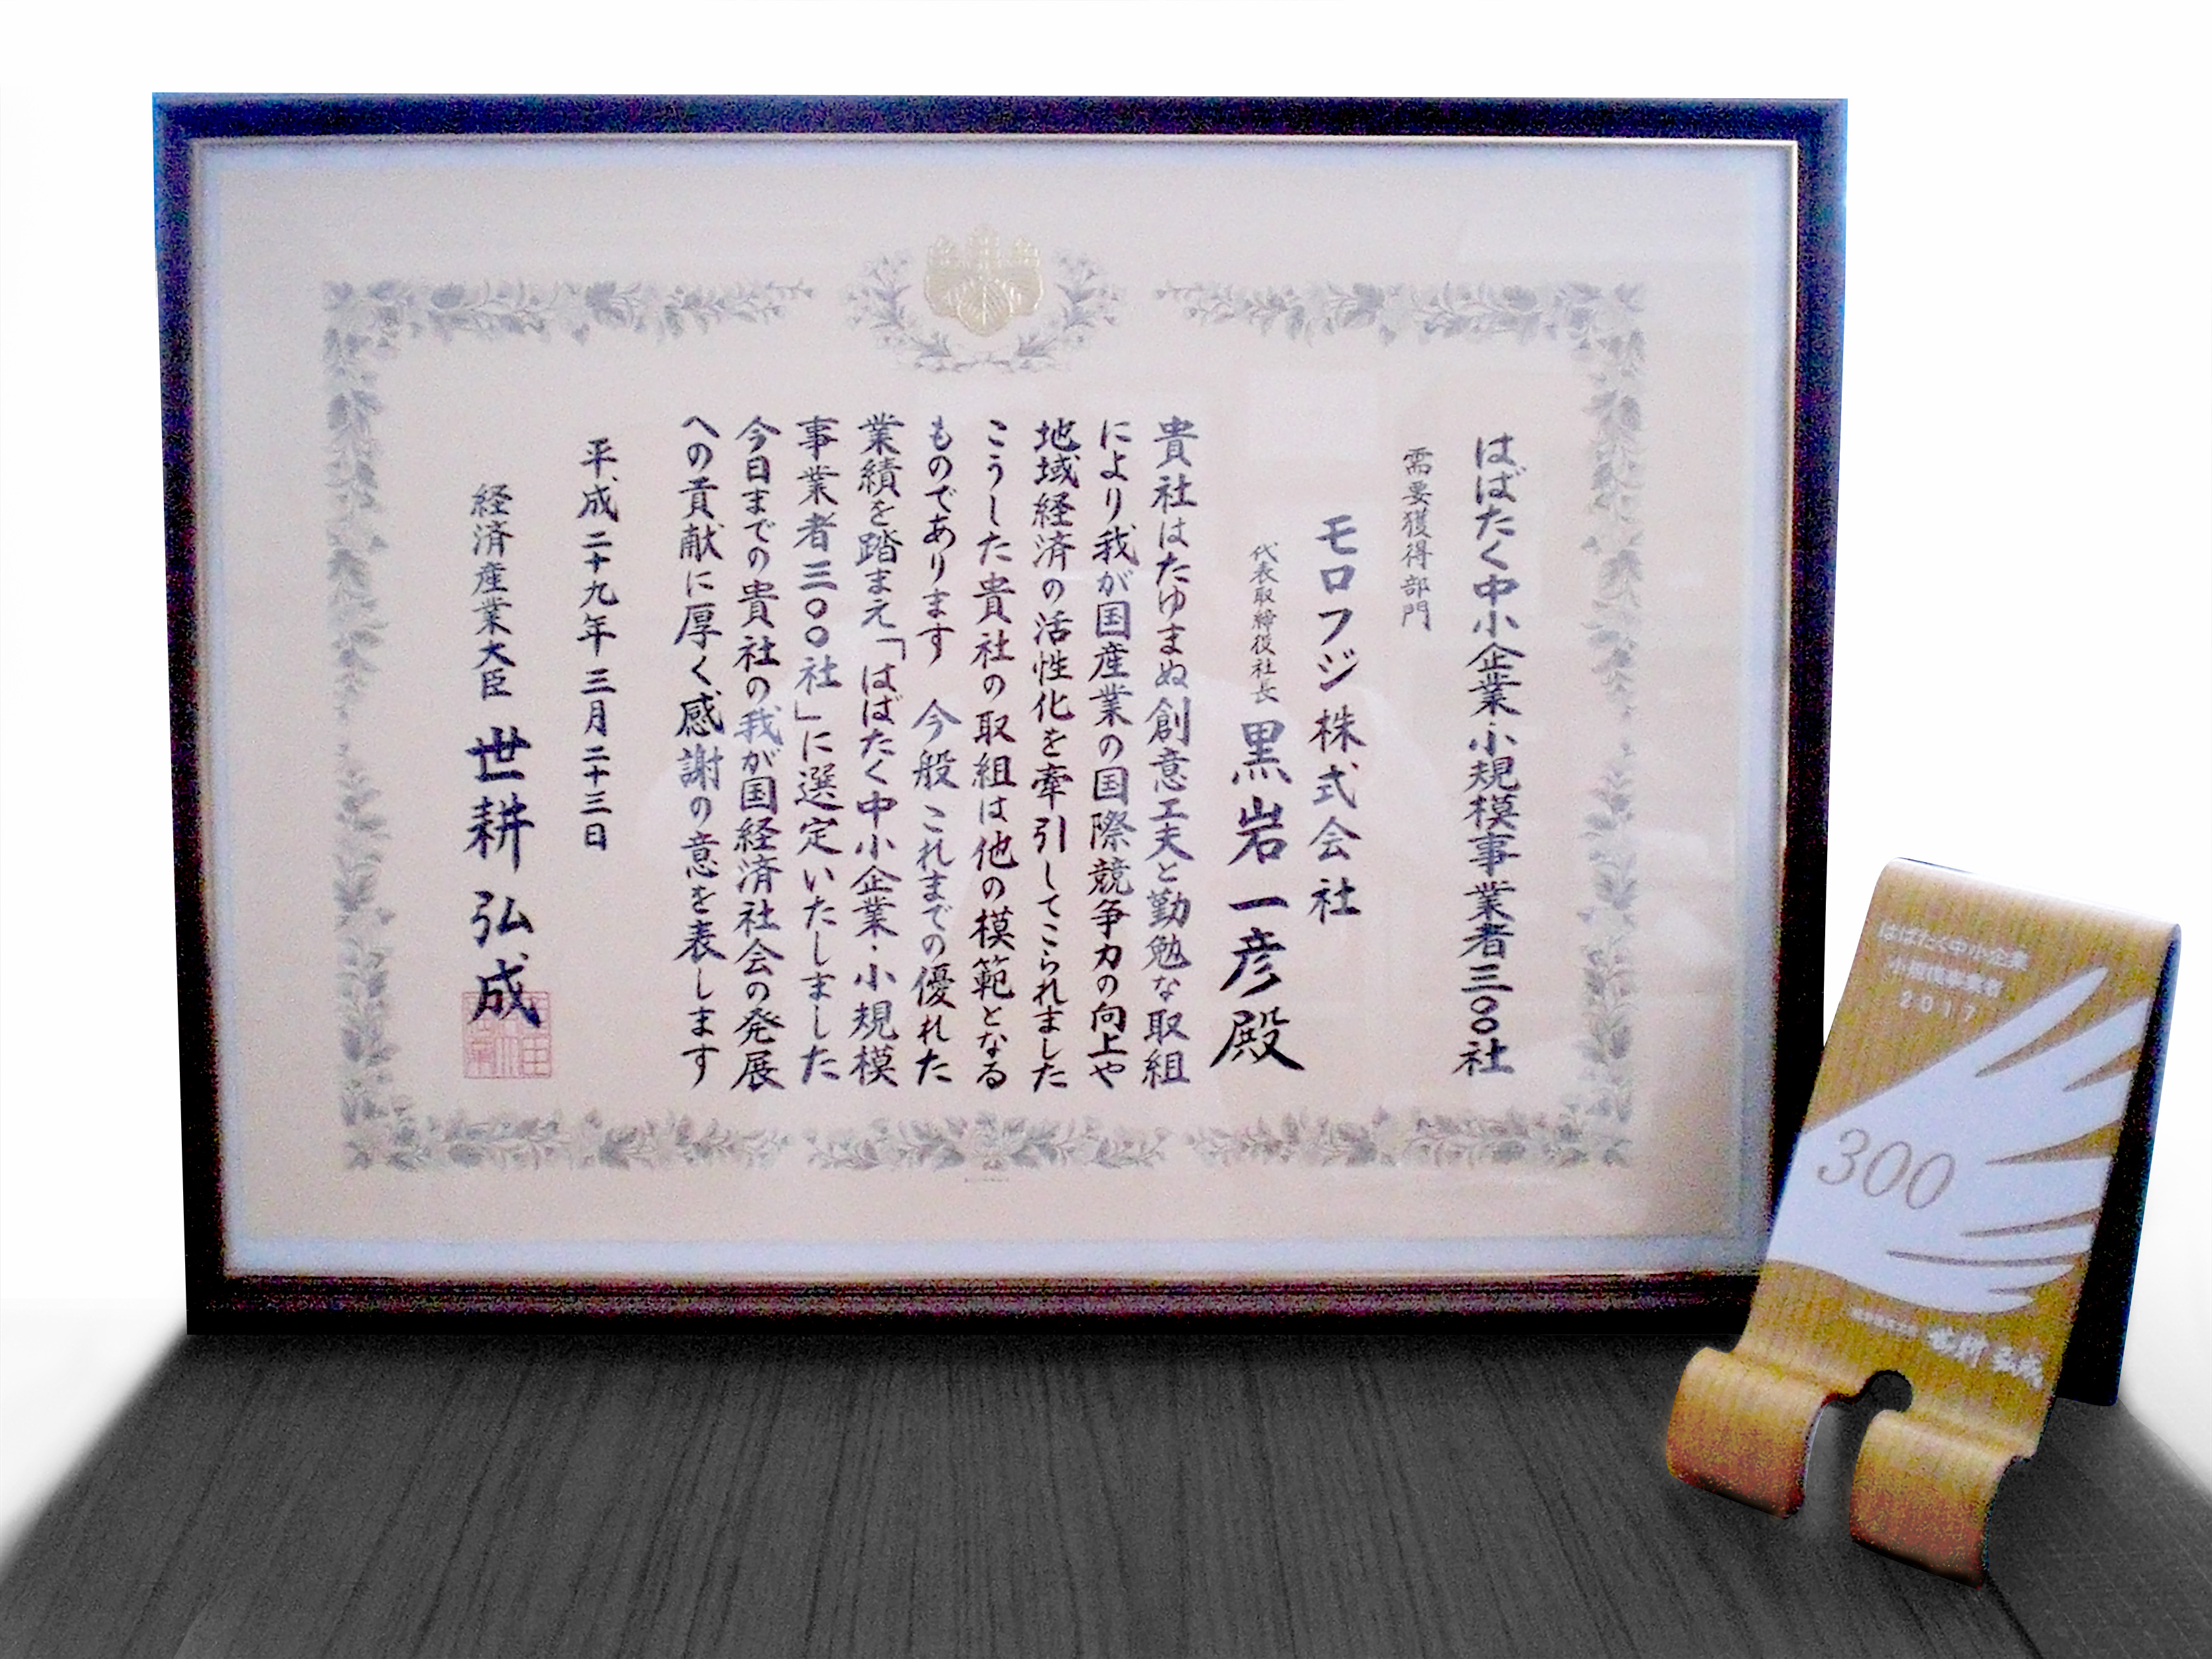 はばたく中小企業・小規模事業者三〇〇社
需要獲得部門
モロフジ株式会社
代表取締役社長 黒岩一彦殿
貴社はたゆまぬ創意工夫と勤勉な取組
により我が国産業の国際競争力の向上や
地域経済の活性化を牽引してこられました
こうした貴社の取組は他の模範となる
ものであります 今般これまでの優れた
業績を踏まえ「はばたく中小企業・小規模
事業者三〇〇社」に選定いたしました
今日までの貴社の我が国経済社会の発展
への貢献に厚く感謝の意を表します
平成二十九年三月二十三日
経済産業大臣 世耕弘成
はばたく中小企業
小規模事業者
2017
300
世耕弘成